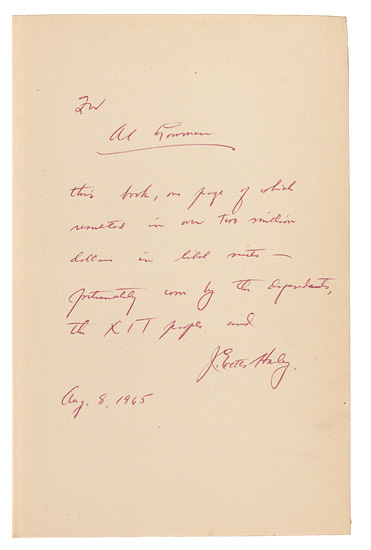 For
Al
this book, one page of which
resulted in over two million
dollars in libel suits —
fortunately won by the defendants,
the XIT people and
J. Evetts Haley.
Aug. 8, 1965